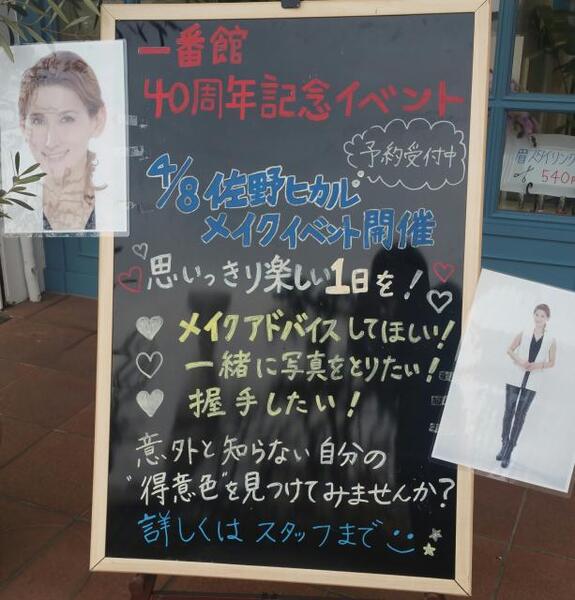 一番館
40周年記念イベント
予約受付中
4/8 佐野ヒカル
メイクイベント開催
思いっきり楽しい1日を!
メイクアドバイスしてほしい!
一緒に写真をとりたい!
握手したい!
意外と知らない自分の
"得意色"を見つけてみませんか?
詳しくは スタッフまで
眉スタイリング
540円